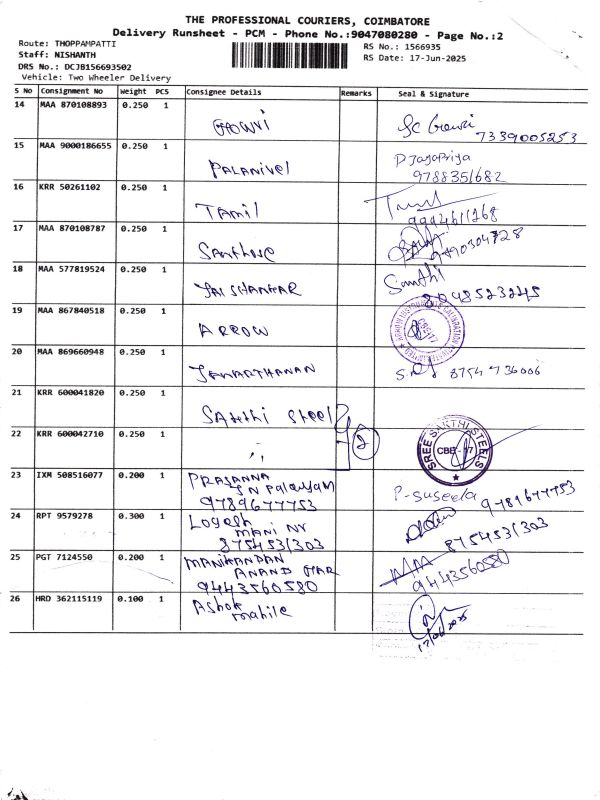 THE PROFESSIONAL COURIERS, COIMBATORE
Delivery Runsheet - PCM - Phone No.:9047080280 - Page No.:2
Route: THOPPAMPATTI
Staff: NISHANTH
DRS No.: DCJB156693502
Vehicle: Two Wheeler Delivery
RS No.: 1566935
RS Date: 17-Jun-2025
S No Consignment No Weight PCS Consignee Details Remarks Seal & Signature
14 MAA 870108893 0.250 1
Gowri 7339005253
15 MAA 9000186655 0.250 1
PALANIVEl P Jayapriya
9788351682
16 KRR 50261102 0.250 1
TAMIL
9994611268
17 MAA 870108787 0.250 1
Santhose
18 MAA 577819524 0.250 1
JAI SHANKAR Santhi
8098523245
19 MAA 867840518 0.250 1
ARROW CBE-17
20 MAA 869660948 0.250 1
JANARTHANAN 8754 736006
21 KRR 600041820 0.250 1
SAKthi Steel
22 KRR 600042710 0.250 1
,, 2 SREE SAKTHI STEELS CBE - 17
23 IXM 508516077 0.200 1
PRASANNA
S N Palayam P-Suseela
9789677753 9789677753
24 RPT 9579278 0.300 1
Logesh
MANI NR
8754531303 8754531303
25 PGT 7124550 0.200 1
MANIKANDAN
ANAND NAR
9443560580 9443560580
26 HRD 362115119 0.100 1
Ashok
mahile
17/06/2025